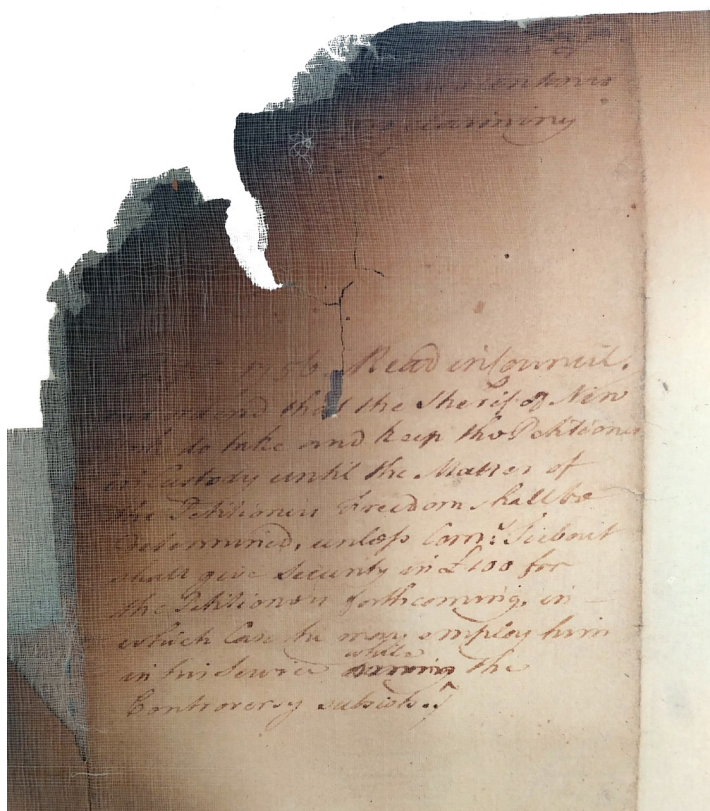 of
claiming
1756 Read in Council.
that the Sherif of New
do take and keep the Petitioner
in Custody until the Matter of
the Petitioners Freedom shall be
Determined, unless Corn.s Siebout
shall give Security in £100 for
the Petitioners forthcoming, in
which Case he may employ him
in his Service while during the
Controversy subsists.